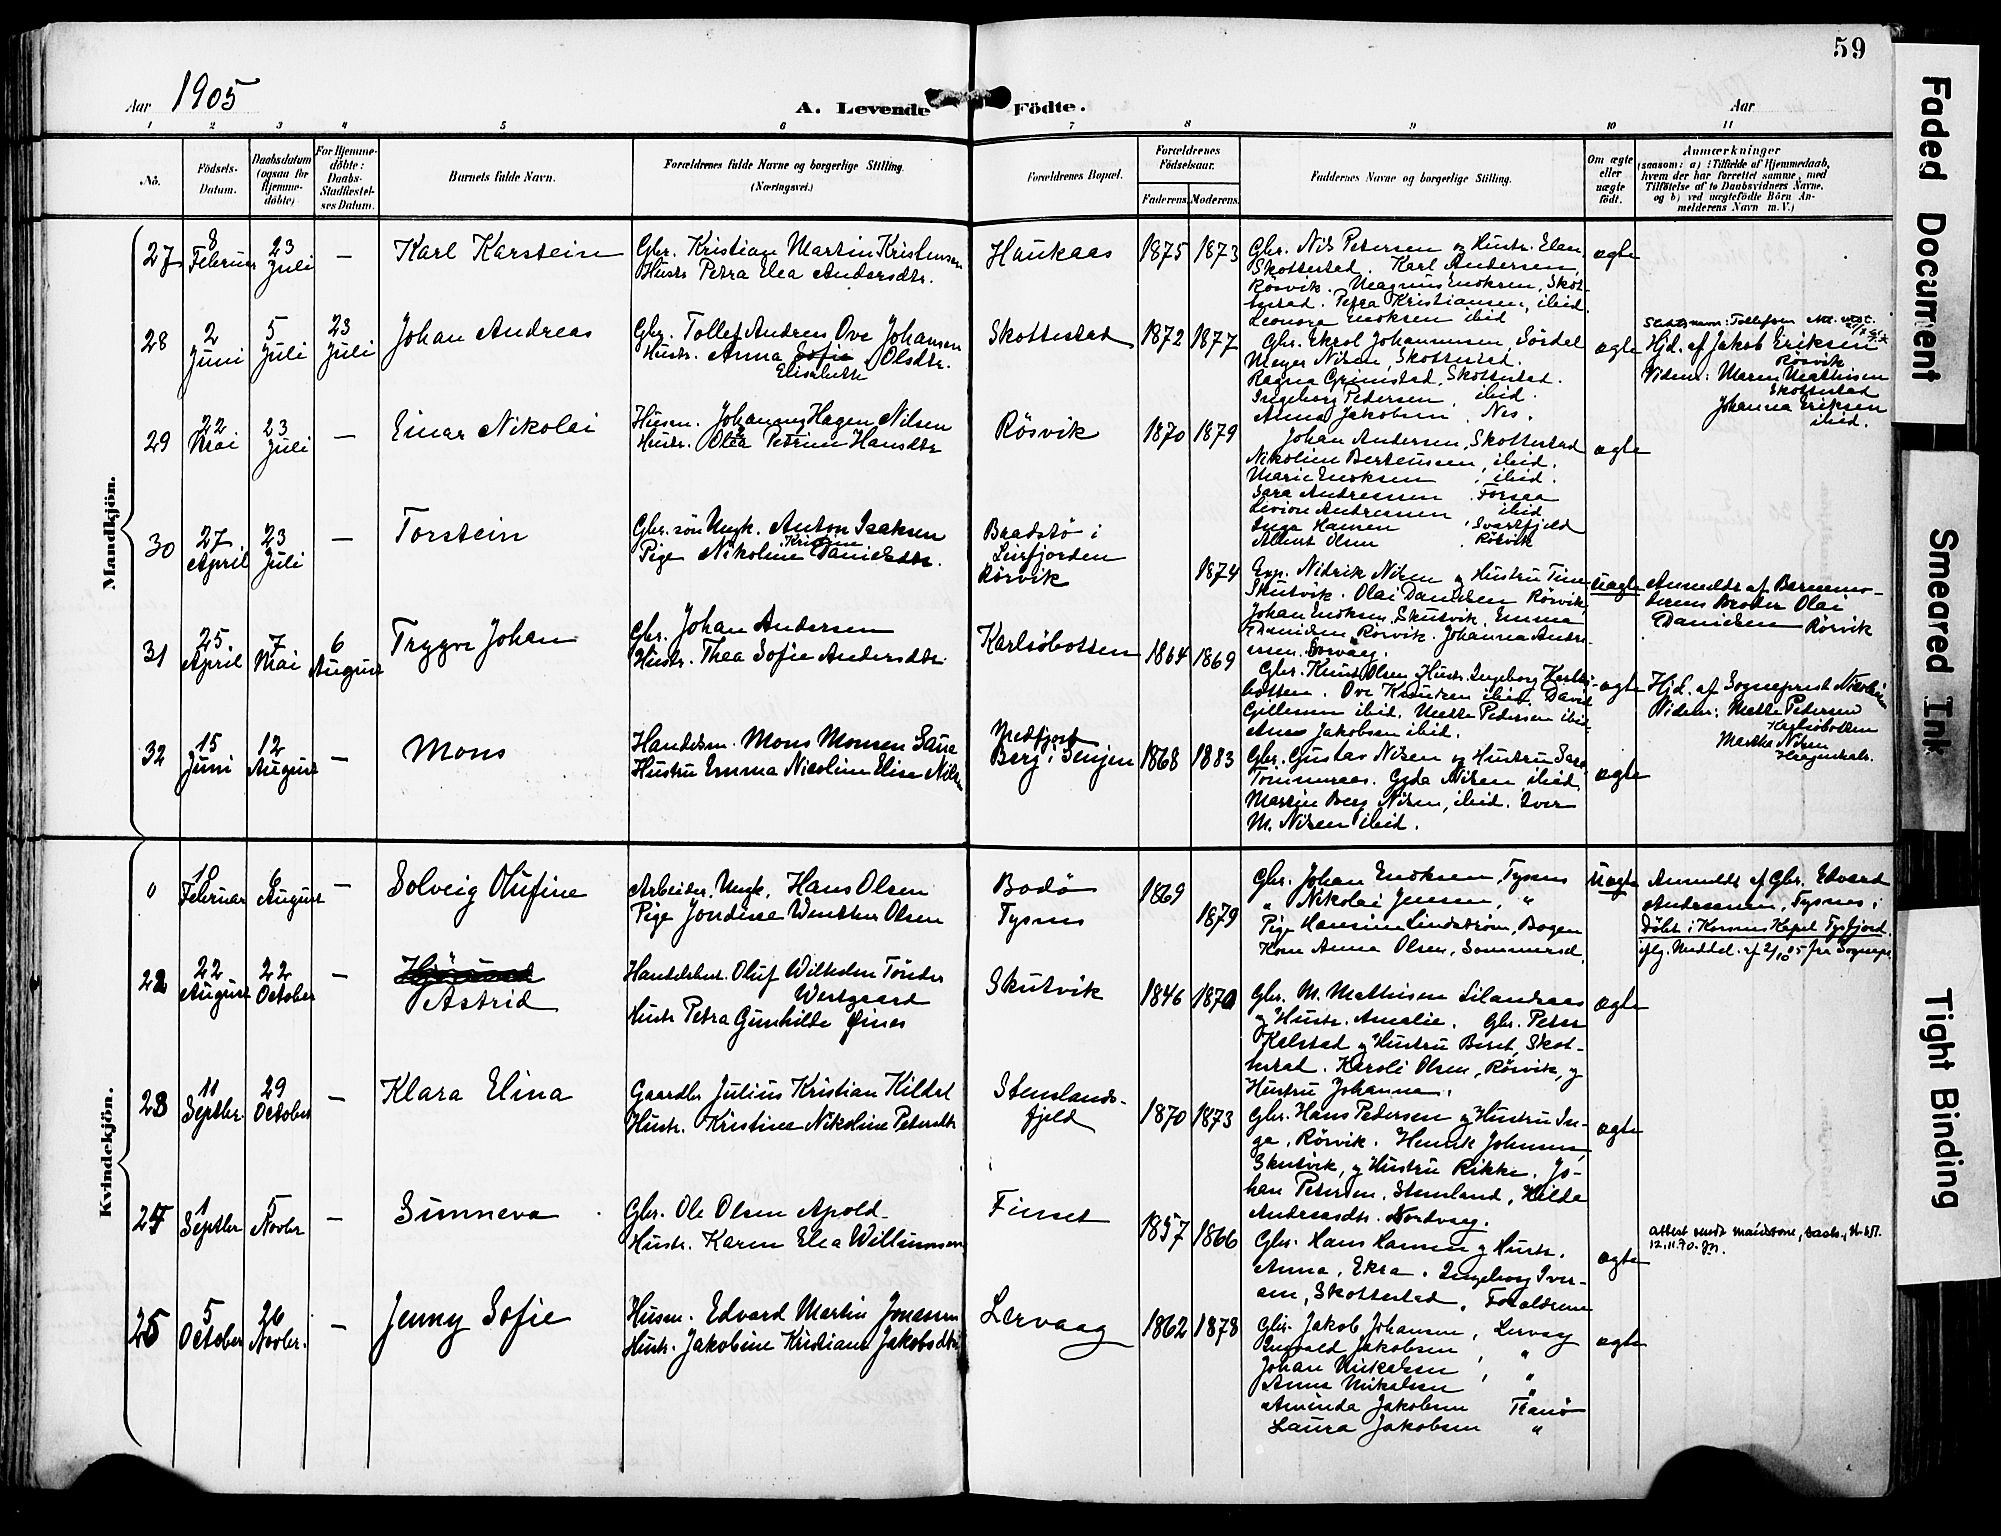 59
Aar 1905
A. Levende Födte.
Aar
1 2 3 4 5 6 7 8 9 10 11
No.
Födsels-
Datum.
Daabsdatum
(ogsaa for
Hjemme-
döbte)
For Hjemme-
döbte:
Daabs-
Stadfæstel-
ses Datum.
Barnets fulde Navn.
Forældrenes fulde Navne og borgerlige Stilling.
(Næringsvei.)
Forældrenes Bopæl.
Forældrenes
Födselsaar.
Faderens. Moderens.
Faddernes Navne og borgerlige Stilling.
Om ægte
eller
uægte
födt.
Anmærkninger
(saasom: a) i Tilfælde af Hjemmedaab,
hvem der har forrettet samme, med
Tilföielse af to Daabsvidners Navne.
og b) ved uægtefödte Börn An-
melderens Navn m. V.)
Mandkjön.
27
8
Februar
23
Juli
—
Karl Karstein
Gbr. Kristian Martin Kristensen
Hustr. Petra Elea Andersdtr.
Haukaas
1875 1873
Gbr. Nils Petersen og Hustr. Elen
Skottestad. Karl Andersen,
Rösvik. Magnus Enoksen, Skot-
testad. Petra Kristiansen, ibid.
Leonora Enoksen ibid
ægte
28
2
Juni
5
Juli
23
Juli
Johan Andreas
Gbr. Tollef Andreas Ove Johansen
Hustr. Anna Sofie Olsdtr.
Elisabeth
Skottestad
1872 1877
Gbr. Johannesen, Sördal
Meyer Nilsen, Skottestad.
Ragna Grimstad, Skottestad.
Ingeborg Pedersen, ibid.
Anna Jakobsen Nes.
ægte
Hjd. af Jakob Eriksen
Rösvik
Vidner: Maren Mathisen
Skottestad
Johanna Eriksen
ibid.
29
22
Mai
23
Juli
—
Einar Nikolai
Husm. Johannes Hagen Nilsen
Hustr. Olea Petrine Hansdtr
Rösvik
1870 1879
Johan Andersen, Skottestad
Nikoline Berteussen, ibid.
Marie Enoksen, ibid.
Sara Andreassen Forsaa
Andreassen ibid
Inga Hansen, Svartfjeld
Albert Olsen Rösvik
ægte
30
27
April
23
Juli
—
Torstein
Gbr.sön Ungk. Anton Isaksen
Kristine
Pige Nikoline Danielsdtr.
i
Leirfjorden
Rörvik
1874
Exp. Nidrik Nilsen og Hustru Tine
Skutvik. Olai Danielsen Rörvik
Johan Enoksen, Skutvik, Emma
Danielsen, Rörvik. Johanna Andre-
assen.
Uægte
Anmeldt af Barnemo-
derens Broder Olai
Danielsen Rörvik
31
25
April
7
Mai
6
August
Trygve Johan
Gbr. Johan Andersen
Hustr. Thea Sofie Andersdtr.
Karlsöbotten
1864 1869
Gbr. Knut Olsen Hustr. Ingeborg Karlsö-
botten. Ove Knudsen ibid. David
ibid. Mette Pedersen ibid.
Jakobsen ibid.
ægte
Hjd. af Sogneprest
Vidner: Mette Pedersen
Karlsöbotten
Martha Nilsen
32
15
Juni
12
August
—
Mons
Handelsm. Mons Monsen
Hustru Emma Nicoline Elise Nils
Berg i Senjen
1868 1883
Gbr. Gustav Nilsen og Hustru Sara
Tömmeraas. Gyda Nilsen, ibid.
Martin Berg Nilsen, ibid. Iver
M. Nilsen ibid.
ægte
Kvindekjön.
Februar
6
August
—
Solveig Olufine
Arbeider, Ungk. Hans Olsen
Pige Jondine Wenther Olsen
Bodö
Tysnes
1869
1879
Gbr. Johan Enoksen, Tysnes
" Nikolai Jensen, "
Pige Hansine Lindström, Bogen
Kone Anna Olsen, Sommersel
Uægte
Anmeldt af Gbr. Edvard
Andreassen, Tysnes i
Döbt i Korsnes Kapel Tysfjord
iflg. Meddel. af 2/10 05 fra Sognepr.
22
22
August
22
October
—
Astrid
Handelsbest. Oluf Wilhelm Tönder
Westgaard
Hustr. Petra Gunhilde Eines
Skutvik
1846 1870
Gbr. M. Mathisen Lilandsaas
og Hustr. Amalie. Gbr. Peter
Kelstad og Hustru Beret, Skot-
testad. Karoli Olsen, Rösvik, og
Hustru Johanna.
ægte
23
11
Septbr.
29
October
—
Klara Elina
Gaardbr. Julius Kristian Kildal
Hustr. Kristine Nikoline Petersdtr
Stenslands-
fjeld
1870 1873
Gbr. Hans Pedersen og Hustru In-
ga, Rösvik. Henrik Johnsen,
Skutvik, og Hustru Rikke. Jo-
han Petersen, Stensland, Hilde
Andreasdtr. Nordvaag.
ægte
24
1
Septbr
5
Novbr
—
Sunneva
Gbr. Ole Olsen Apold
Hustr. Karen Elea Willumsen
Finset
1857 1866
Gbr. Hans Hansen og Hustr.
Anna, Ekra. Ingeborg Iver-
sen, Skottestad. Forældrene
ægte
Attest sendt Maidstone, Sask.,
12.11.70.
25
5
October
26
Novbr.
—
Jenny Sofie
Husm. Edvard Martin Johansen
Hustr. Jakobine Kristiane Jakobsdtr
Lervaag
1862 1878
Gbr. Jakob Johansen, Lervag
Jakobsen, "
Johan Mikalsen, "
Anna Mikalsen "
Aminda Jakobsen Tranö
Laura Jakobsen "
ægte
Faded Document
Smeared Ink
Tight Binding